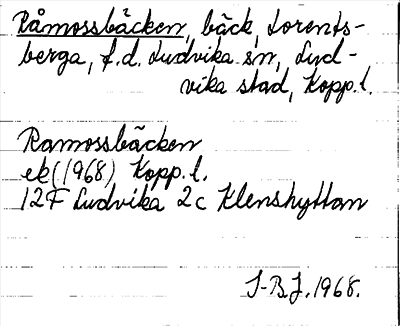 Råmossbäcken, bäck, Lorents-
berga, f.d. Ludvika sn, Lud-
vika stad, Kopp.l.
Ramossbäcken
ek (1968) Kopp.l.
12F Ludvika 2c Klenshyttan
I-B.J. 1968.